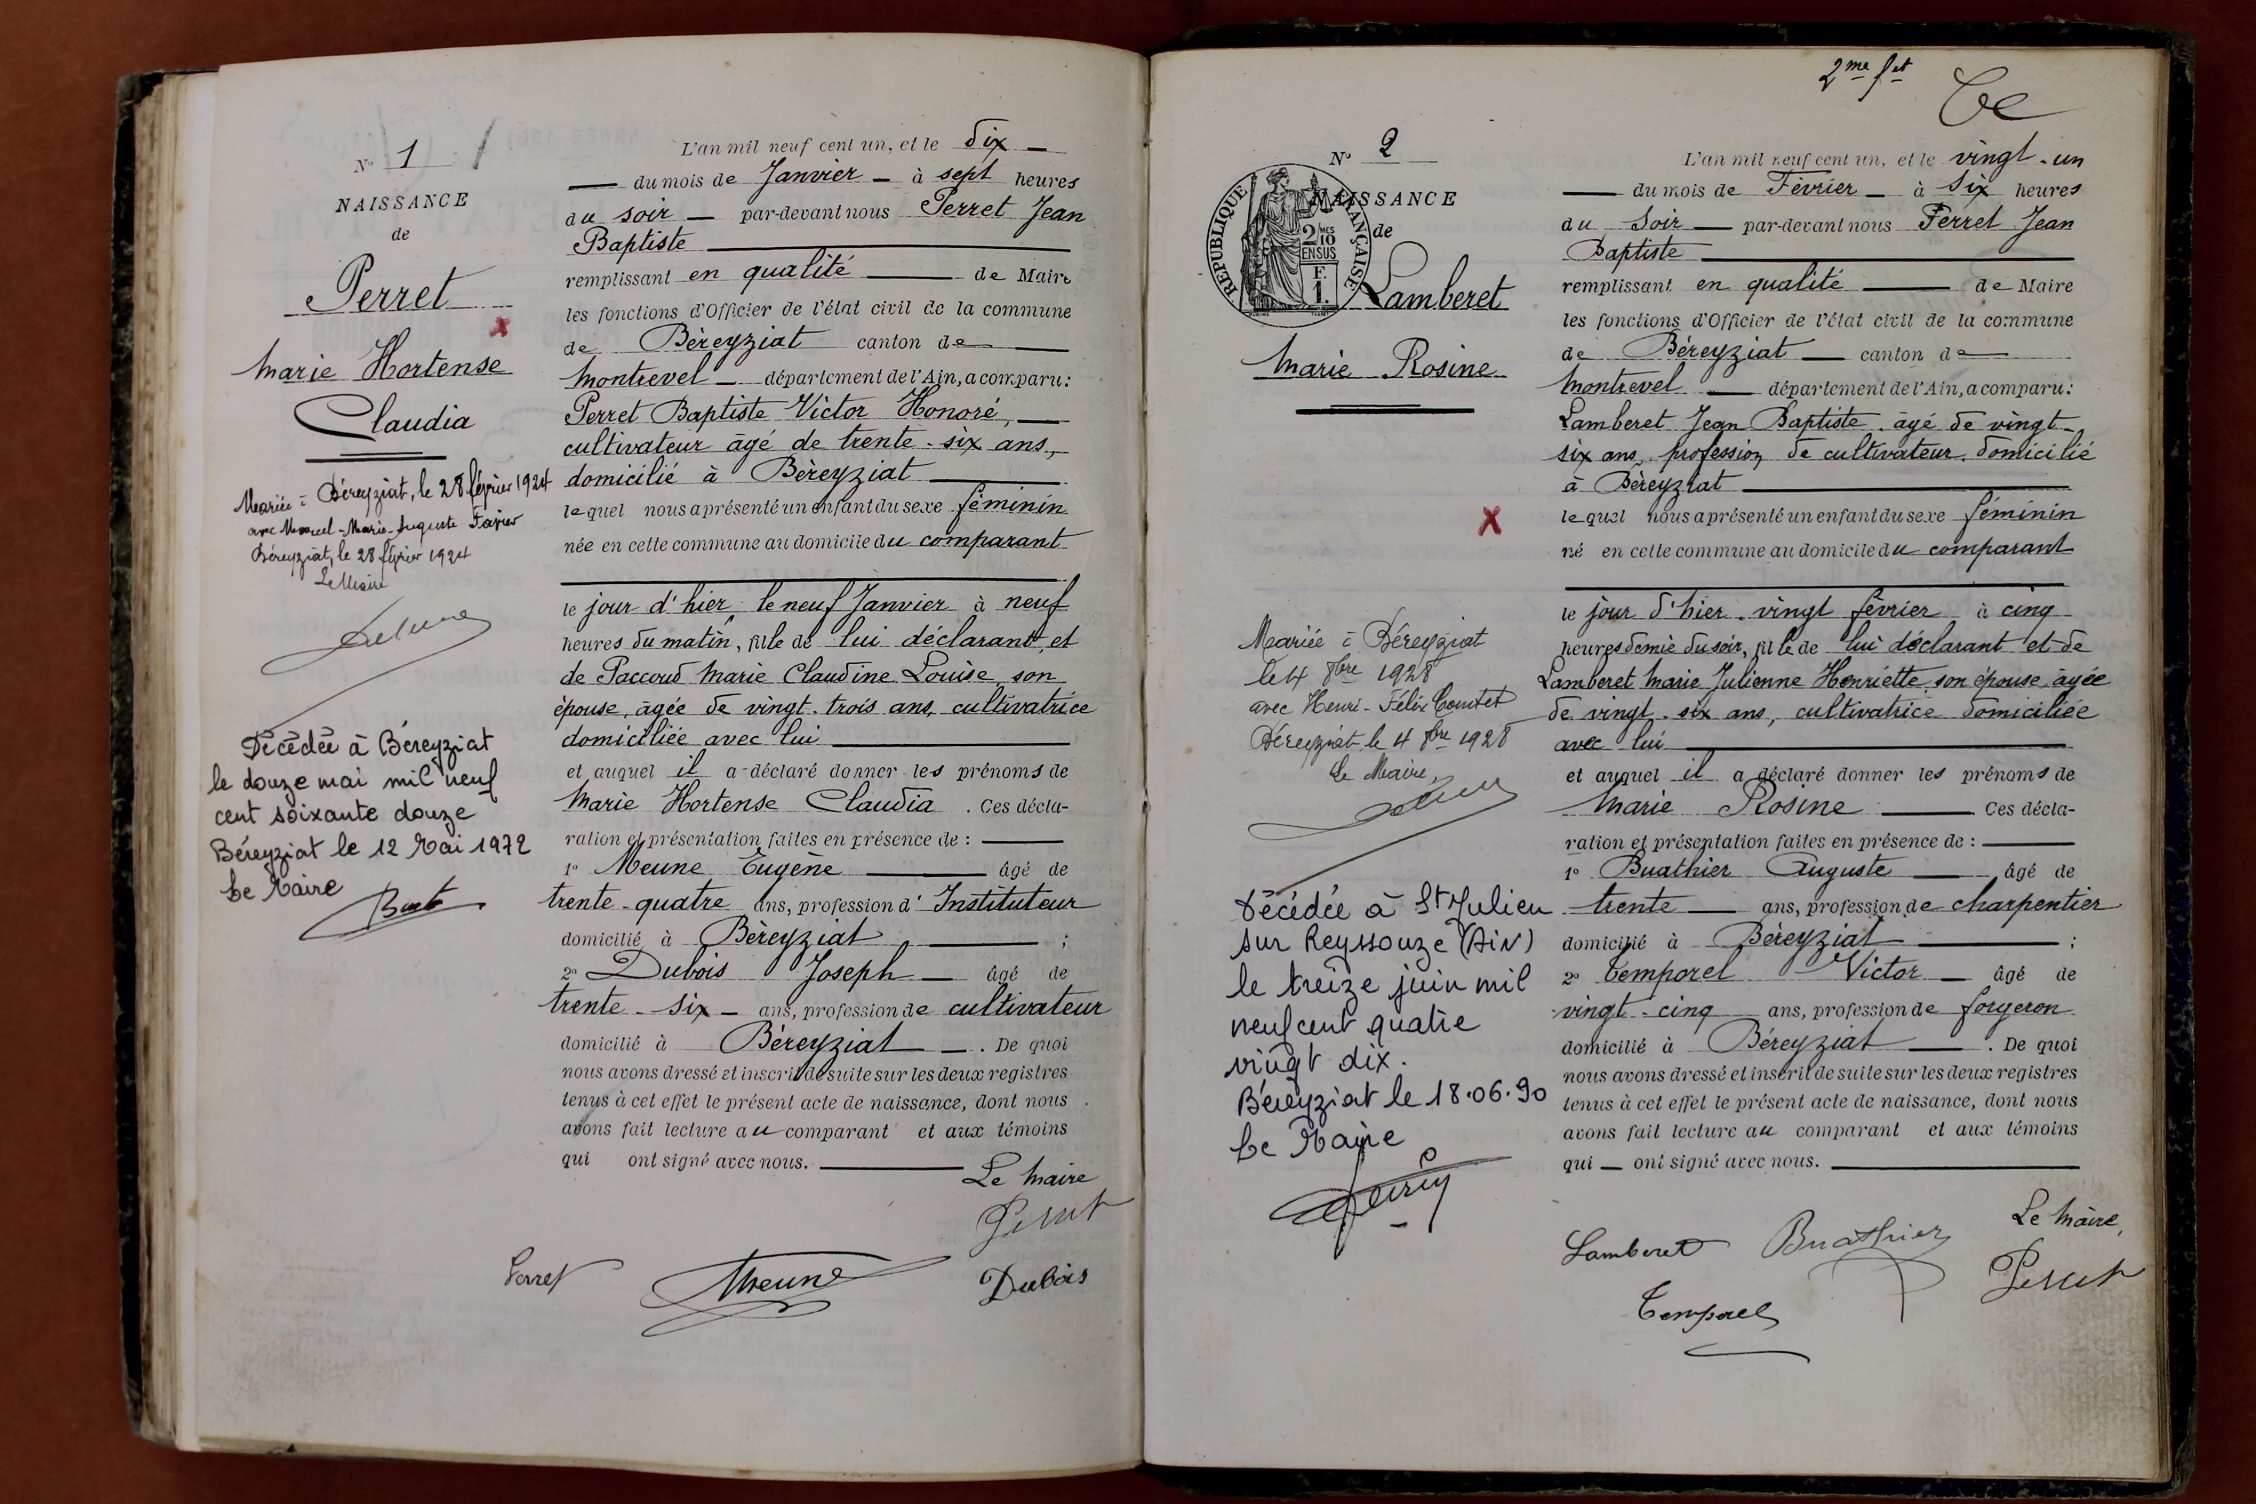 N° 1
NAISSANCE
de
Perret
Marie Hortense
Claudia
Mariée à Béreyziat, le 28 février 1924
avec Marcel-Marie-Auguste Favier
Béreyziat, le 28 février 1924
Le Maire
Décédée à Béreyziat
le douze mai mil neuf
cent soixante douze
Béreyziat le 12 Mai 1972
Le Maire
L'an mil neuf cent un, et le dix
du mois de Janvier à sept heures
du soir par-devant nous Perret Jean
Baptiste
remplissant en qualité de Maire
les fonctions d'Officier de l'état civil de la commune
de Béreyziat canton de
Montrevel département de l'Ain, a comparu:
Perret Baptiste Victor Honoré,
cultivateur âgé de trente-six ans,
domicilié à Béreyziat
lequel nous a présenté un enfant du sexe féminin
née en cette commune au domicile du comparant
le jour d'hier le neuf Janvier à neuf
heures du matin, fille de lui déclarant, et
de Paccoud Marie Claudine Louise, son
épouse, âgée de vingt-trois ans, cultivatrice
domiciliée avec lui
et auquel il a déclaré donner les prénoms de
Marie Hortense Claudia. Ces décla-
ration et présentation faites en présence de :
1° Meune Eugène âgé de
trente-quatre ans, profession d'Instituteur
domicilié à Béreyziat ;
2° Dubois Joseph âgé de
trente-six ans, profession de cultivateur
domicilié à Béreyziat. De quoi
nous avons dressé et inscrit de suite sur les deux registres
tenus à cet effet le présent acte de naissance, dont nous
avons fait lecture au comparant et aux témoins
qui ont signé avec nous.
Le Maire
Perret
Perret Meune Dubois
2me fet
N° 2
NAISSANCE
de
RÉPUBLIQUE FRANÇAISE
2/10 MES
EN SUS
F.
1.
Lamberet
Marie Rosine
Mariée à Béreyziat
le 4 8bre 1928
avec Henri-Félix Comtet
Béreyziat le 4 8bre 1928
Le Maire,
Décédée à St Julien
sur Reyssouze (AiN)
le treize juin mil
neuf cent quatre
vingt dix.
Béreyziat le 18.06.90
Le Maire
L'an mil neuf cent un, et le vingt-un
du mois de Février à Six heures
du Soir par-devant nous Perret Jean
Baptiste
remplissant en qualité de Maire
les fonctions d'Officier de l'état civil de la commune
de Béreyziat canton de
Montrevel département de l'Ain, a comparu:
Lamberet Jean Baptiste âgé de vingt-
six ans, profession de cultivateur, domicilié
à Béreyziat
lequel nous a présenté un enfant du sexe féminin
né en cette commune au domicile du comparant
le jour d'hier vingt février à cinq
heures demie du soir, fille de lui déclarant et de
Lamberet Marie Julienne Henriette son épouse âgée
de vingt-six ans, cultivatrice domiciliée
avec lui
et auquel il a déclaré donner les prénoms de
Marie Rosine Ces décla-
ration et présentation faites en présence de :
1° Buathier Auguste âgé de
trente ans, profession de charpentier
domicilié à Béreyziat ;
2° Temporel Victor âgé de
vingt-cinq ans, profession de forgeron
domicilié à Béreyziat. De quoi
nous avons dressé et inscrit de suite sur les deux registres
tenus à cet effet le présent acte de naissance, dont nous
avons fait lecture au comparant et aux témoins
qui ont signé avec nous.
Le Maire,
Lamberet Buathier Perret
Temporel